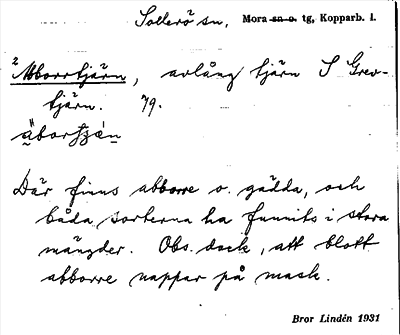 Sollerö sn, Mora sn o. tg, Kopparb. l.
2 Abborrtjärn, avlång tjärn S Grev-
tjärn. 79.
Där finns abborre o. gädda, och
båda sorterna ha funnits i stora
mängder. Obs. dock, att blott
abborre nappar på mask.
Bror Lindén 1931